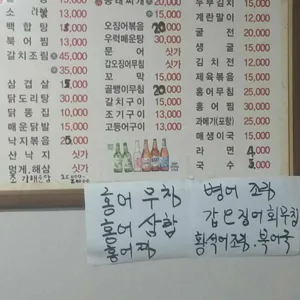 소 라
백 합 탕
북 어 찜 33,000
갈치조림 45,000
35,000
삼 겹 살
닭도리탕 30,000
닭 똥 집 10,000
매운닭발 15,000
낙지볶음
산 낙 지 싯가
멍게,해삼 싯가
20,000
오징어볶음
우럭매운탕 30,000
문 어 싯가
갑오징어무침 싯가
꼬 막 15,000
골뱅이무침
갈치구이 15,000
조기구이 13,000
고등어구이 13,000
두부김치 15,000
계란말이 10,000
굴 전 20,000
생 굴 15,000
김 치 전 12,000
제육볶음 15,000
홍어무침 30,000
홍 어 찜 30,000
과메기(포항) 25,000
매생이국 15,000
라 면
국 수
홍어 무침
홍어 삼합
홍어찜
병어 조림
갑오징어회무침
황석어조림. 북어국